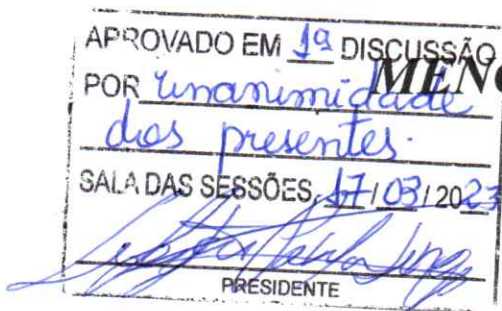 APROVADO EM 1ª DISCUSSÃO
MENÇ
POR unanimidade
dos presentes.
SALA DAS SESSÕES, 17/03/2023
PRESIDENTE